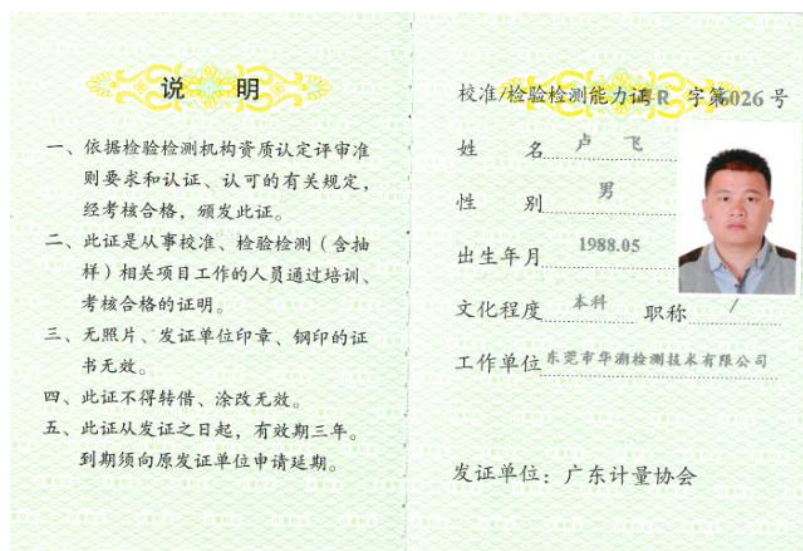 说 明
一、依据检验检测机构资质认定评审准
则要求和认证、认可的有关规定，
经考核合格，颁发此证。
二、此证是从事校准、检验检测（含抽
样）相关项目工作的人员通过培训、
考核合格的证明。
三、无照片、发证单位印章、钢印的证
书无效。
四、此证不得转借、涂改无效。
五、此证从发证之日起，有效期三年。
到期须向原发证单位申请延期。
校准/检验检测能力证R 字第6026号
姓 名 卢 飞
性 别 男
出生年月 1988.05
文化程度 本科 职称 /
工作单位 东莞市华溯检测技术有限公司
发证单位：广东计量协会